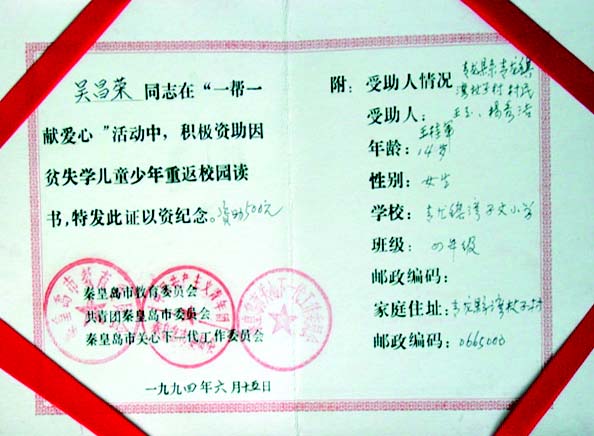 吴昌荣 同志在“一帮一
献爱心”活动中，积极资助因
贫失学儿童少年重返校园读
书，特发此证以资纪念。资助500元
秦皇岛市教育委员会
共青团秦皇岛市委员会
秦皇岛市关心下一代工作委员会
一九九四年六月十五日
附：受助人情况 青龙县 青龙镇
村 村民
受助人：
年龄：14岁
性别：女生
学校：青龙镇湾 小学
班级：四年级
邮政编码：
家庭住址：青龙县 湾杖子村
邮政编码：066500